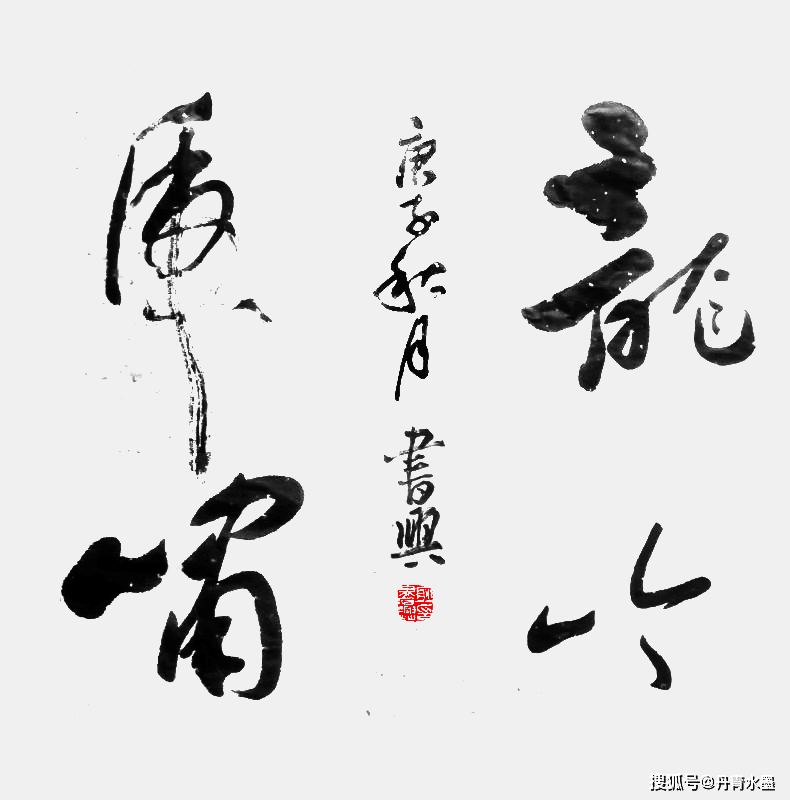 龍吟
庚子秋月
書興
虎嘯
搜狐号@丹青水墨